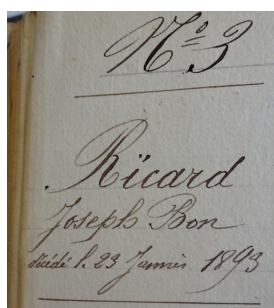 Nº 3
Ricard
Joseph Bon
décédé le 23 Janvier 1893